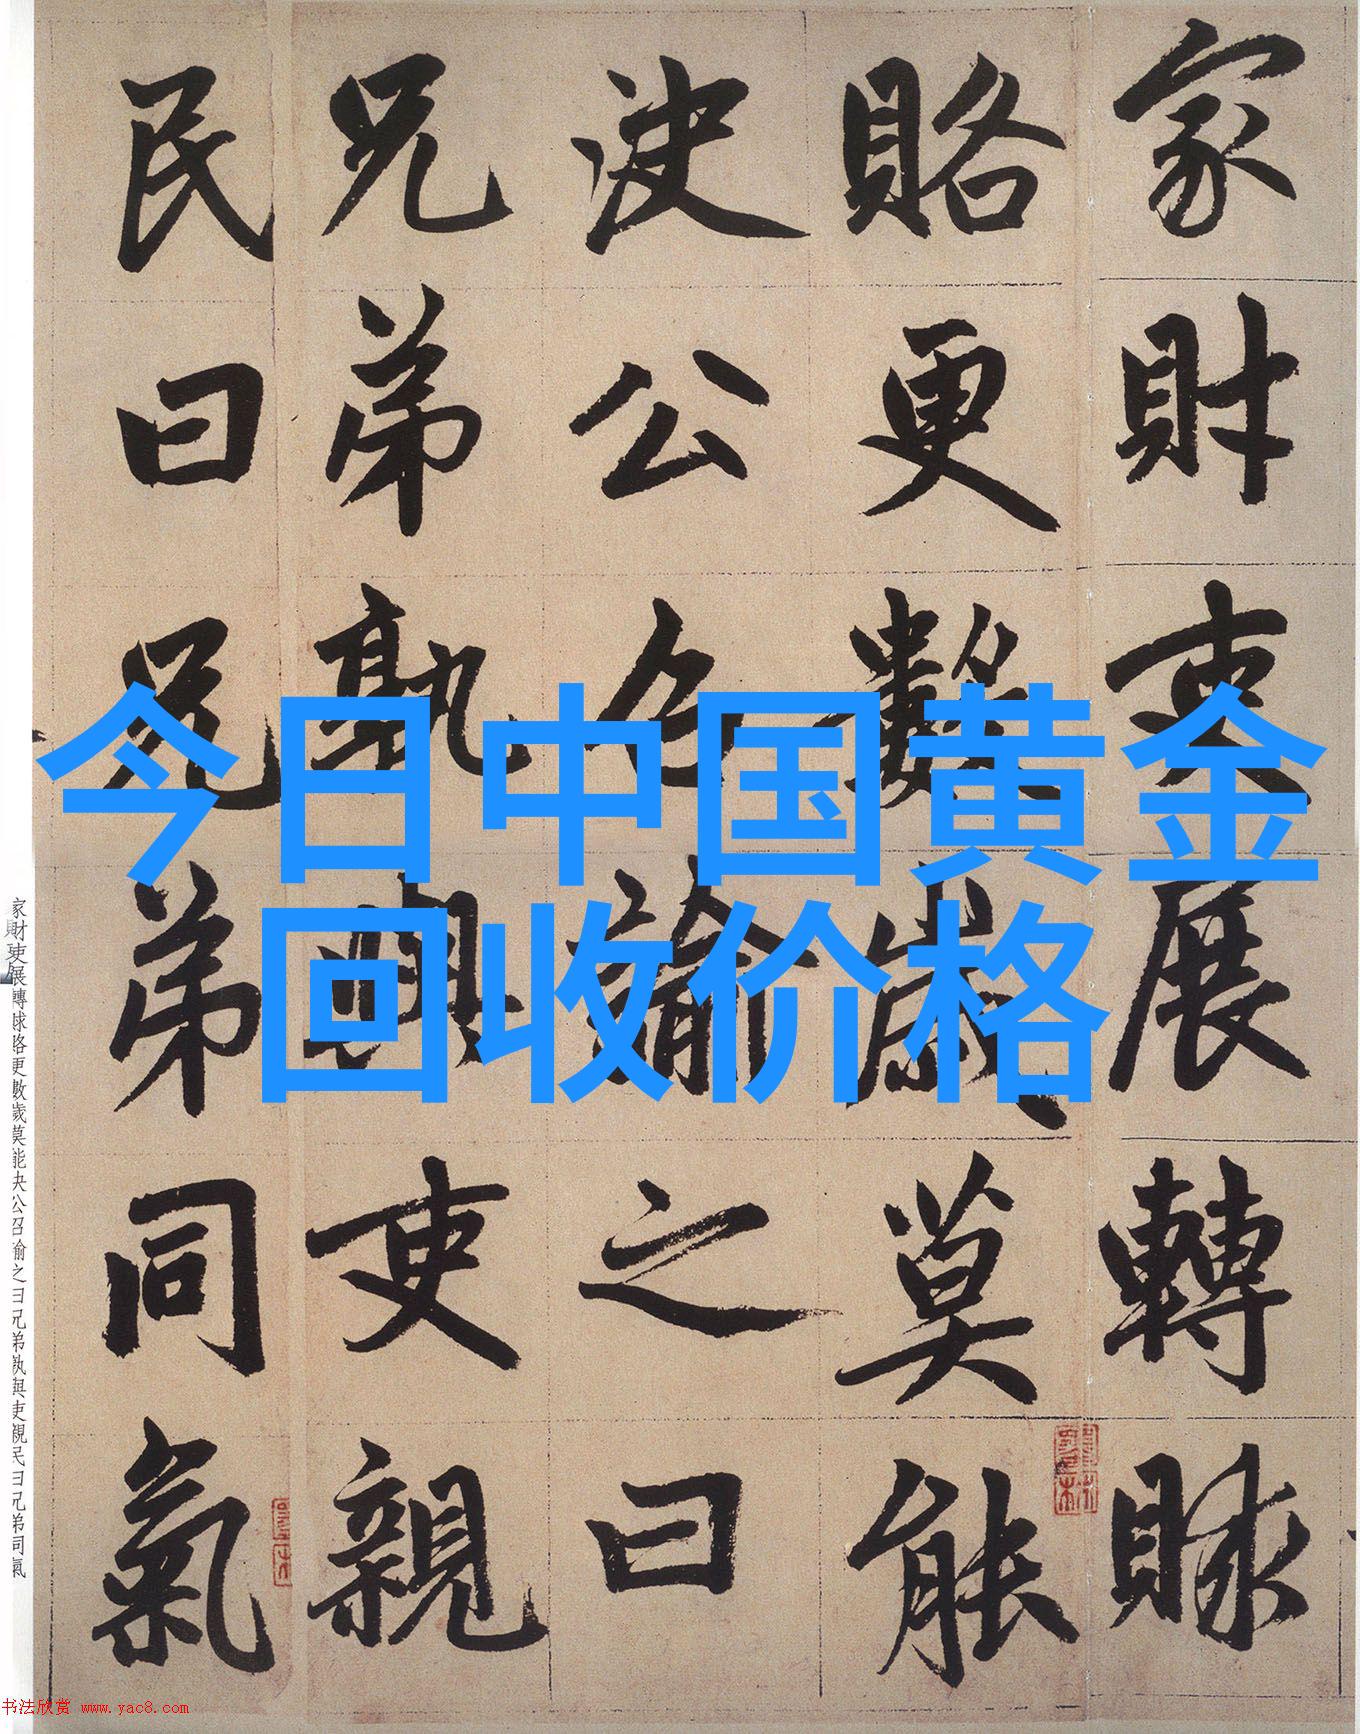 家財吏展轉賕
賂更數歲莫能
決公召諭之曰
兄弟孰與吏親
民曰兄弟同氣
今日中国黄金
回收价格
家財吏展轉賕賂更數歲莫能決公召諭之曰兄弟孰與吏親民曰兄弟同氣
书法欣赏 www.yac8.com